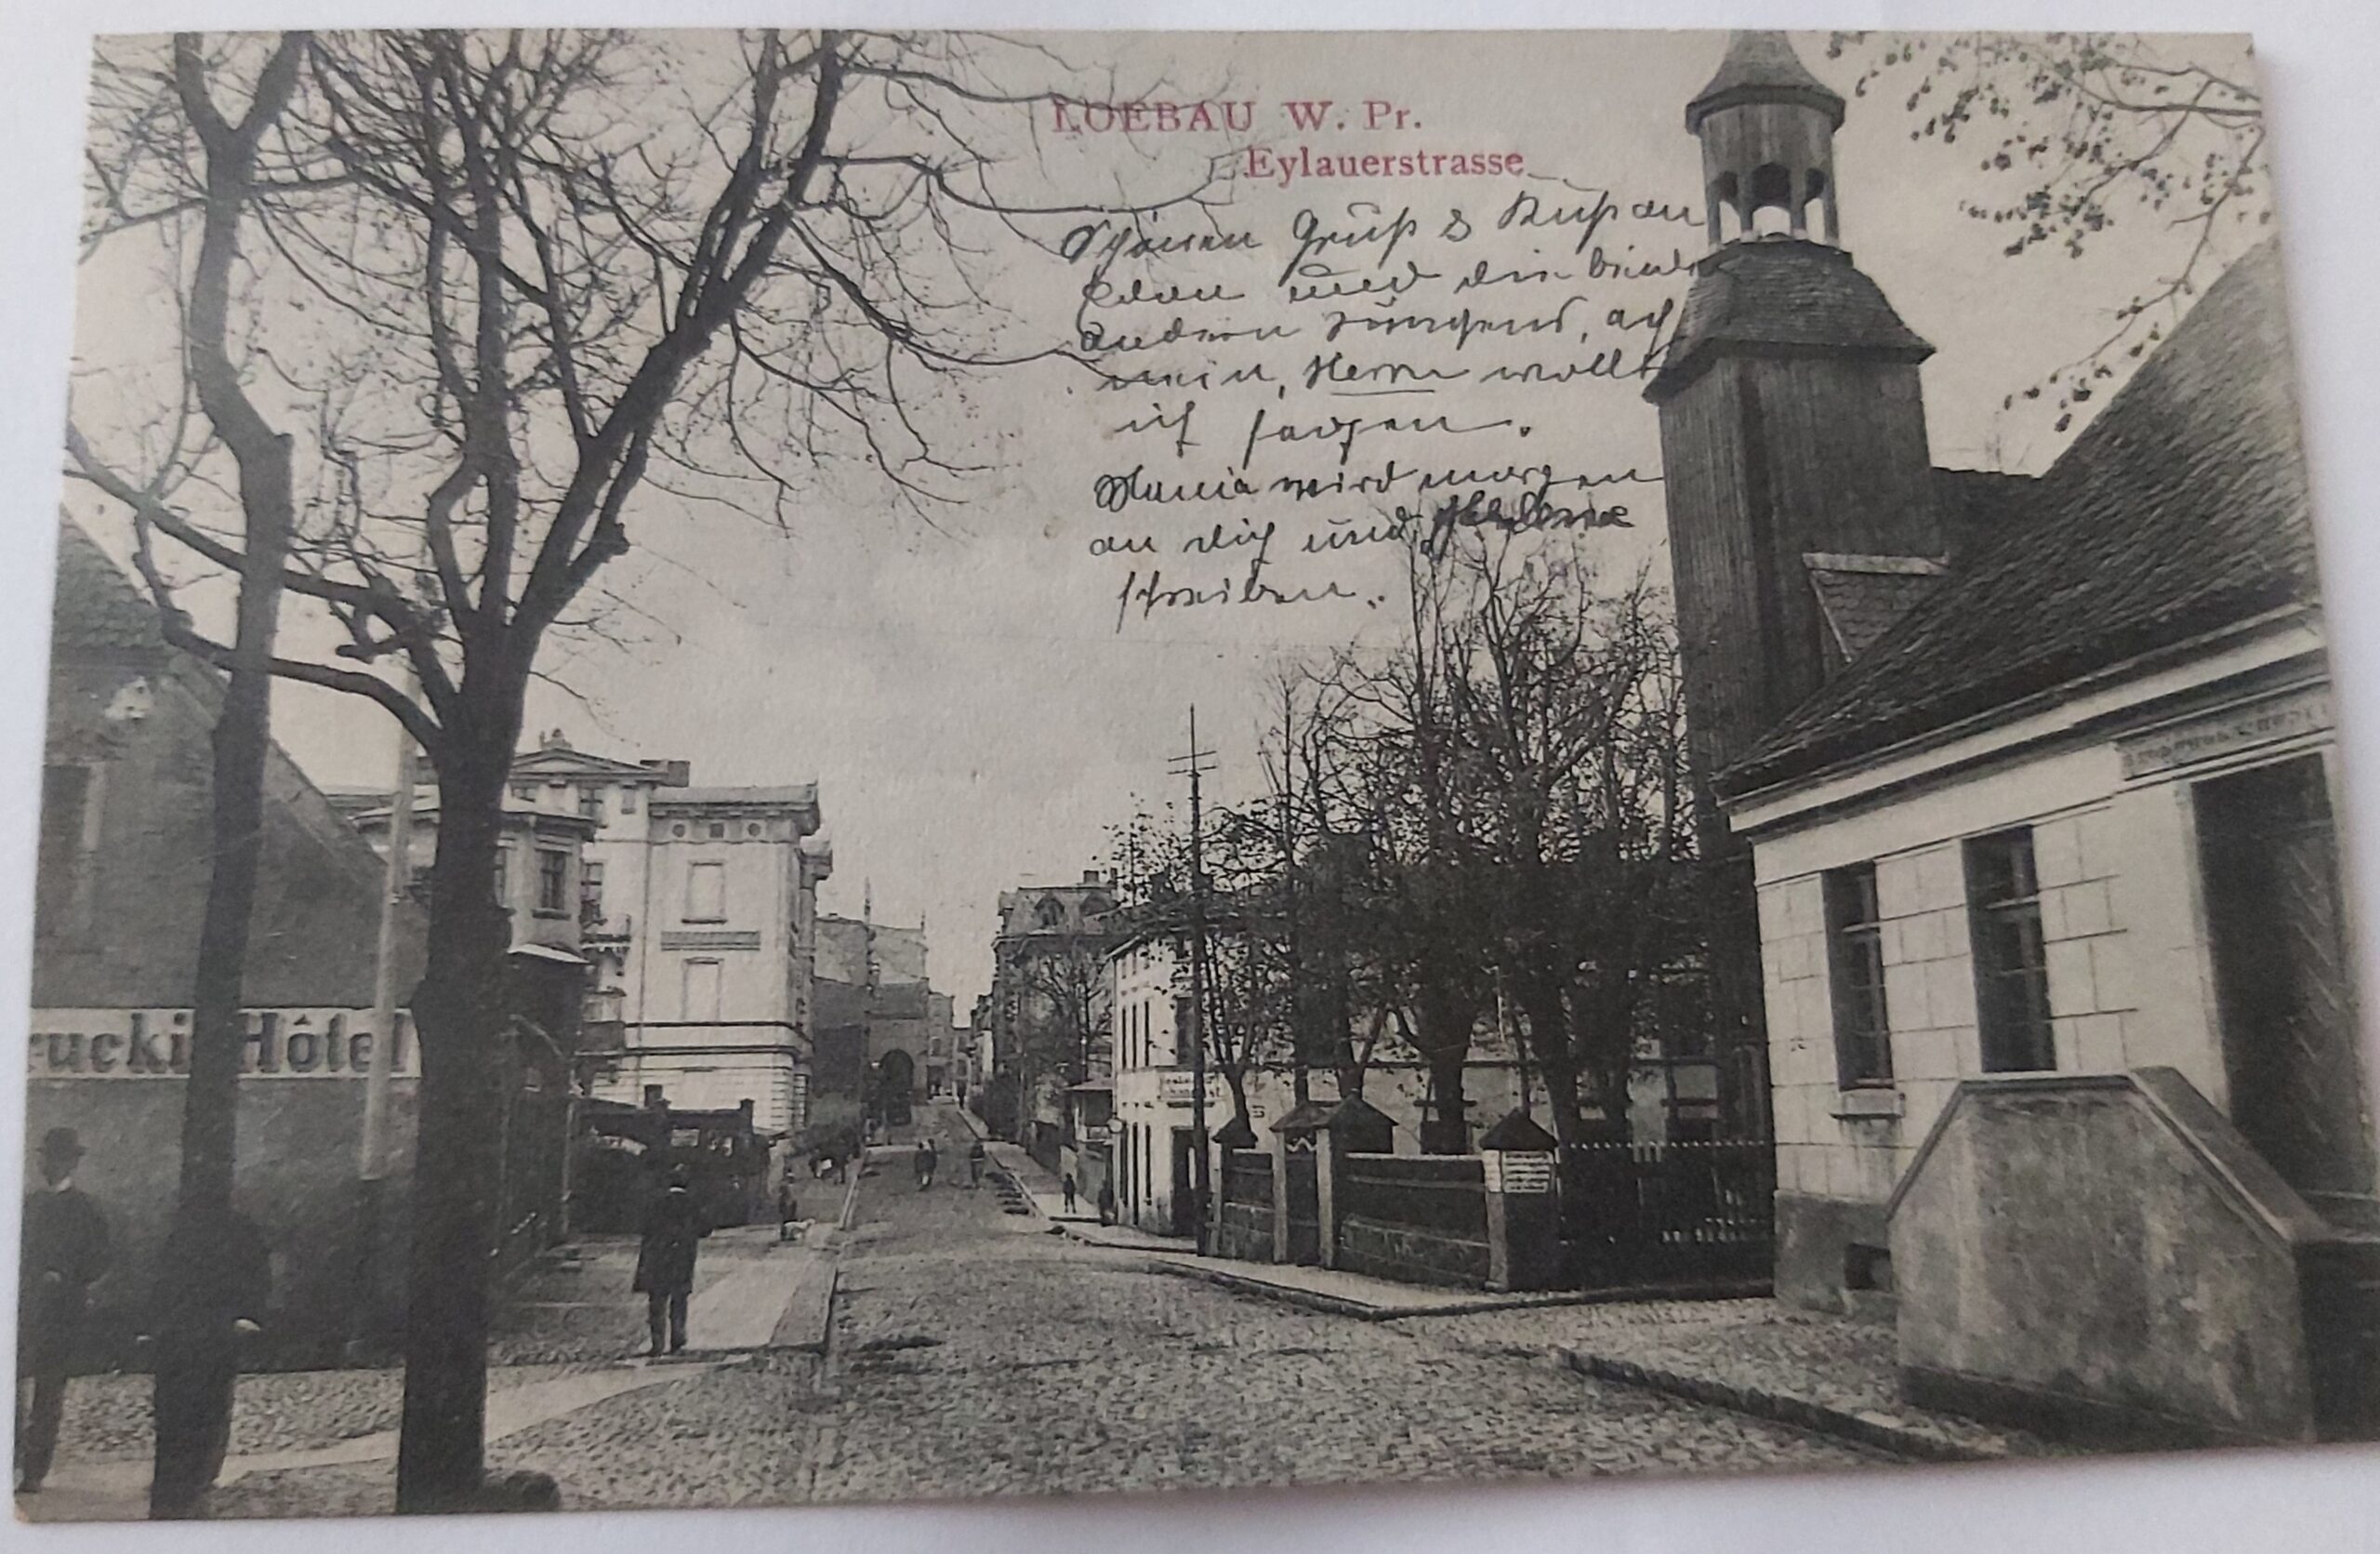 LOEBAU W. Pr.
Eylauerstrasse
Schönen Gruß & Kuß an
und die beid
andern Jungens, ach
nein, Herrn wollt
ich sagen.
Mama wird morgen
an dich und Helene
schreiben.
ucki Hôtel